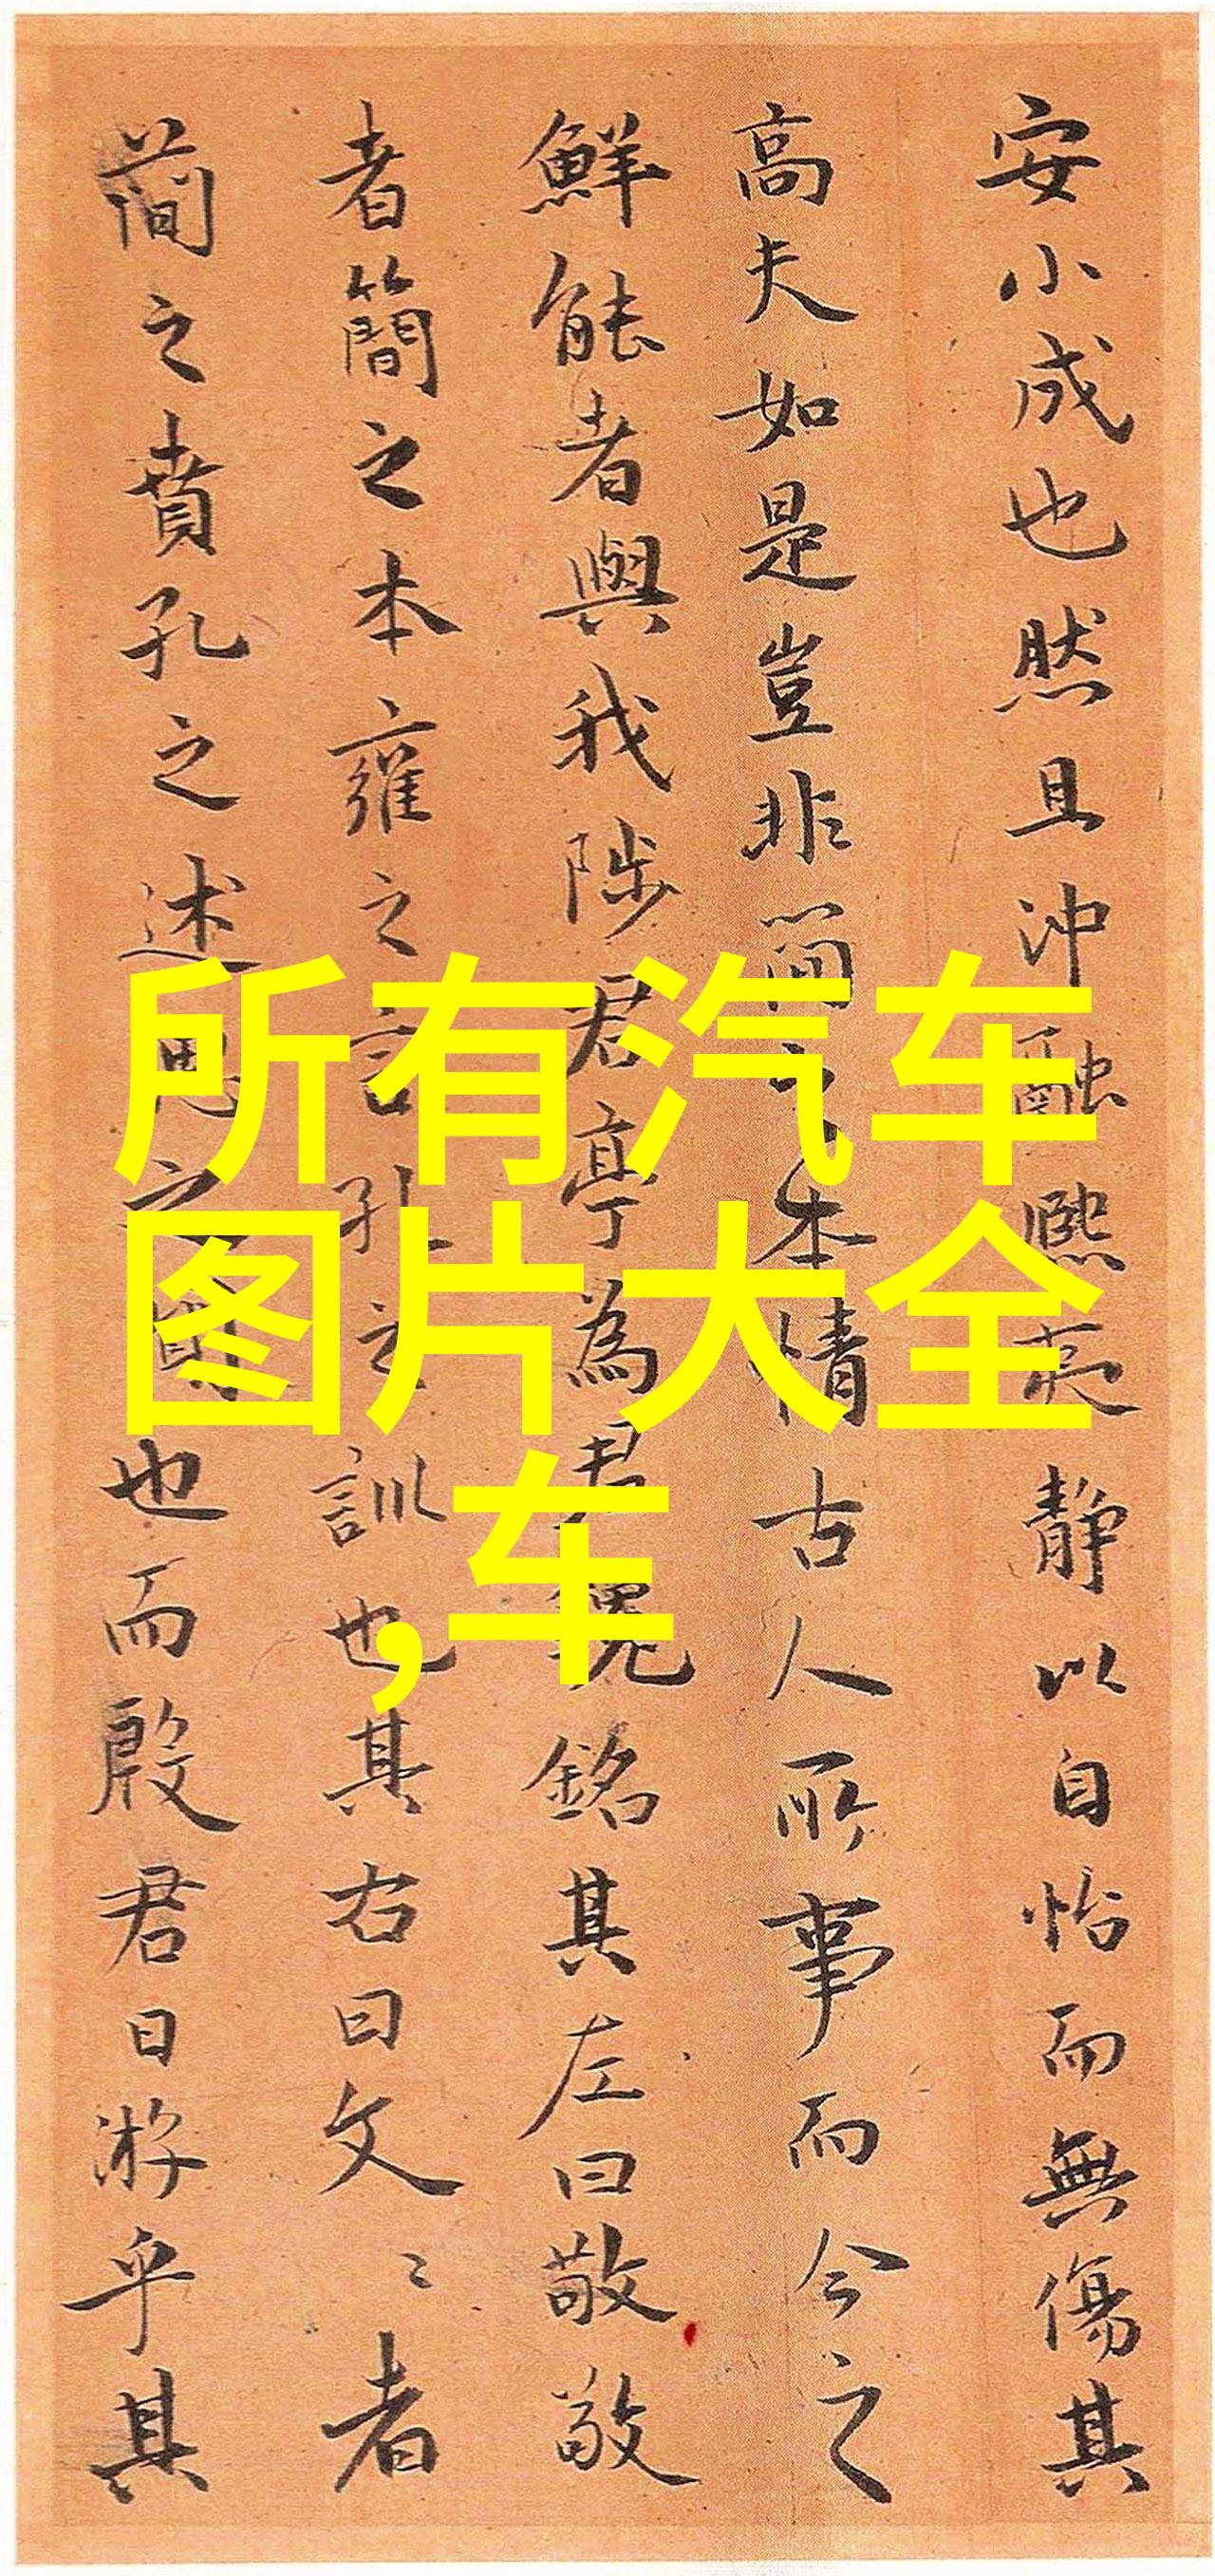 安小成也然且沖融熙亮靜以自怡而無傷其
高夫如是豈非簡之本情古人所事而今之
鮮能者與我陟君亭為君銘其左曰敬敬
者簡之本雍之言孔之訓也其右曰文〻者
簡之賁孔之述思之也而殷君日游乎其
所有汽车
图片大全
,车